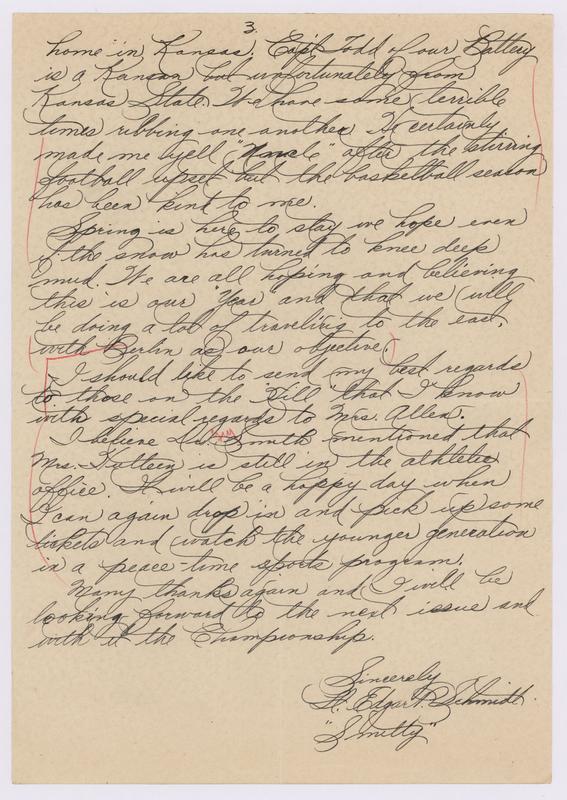 3
home in Kansas. Capt Todd of our Battery
is a Kansan but unfortunately from
Kansas State. We have some terrible
times ribbing one another. He certainly
made me yell "Uncle" after the stirring
football upset but the basketball season
has been kind to me.
Spring is here to stay we hope even
if the snow has turned to knee deep
mud. We are all hoping and believing
this is our "Year" and that we will
be doing a lot of traveling to the east,
with Berlin as our objective.
I should like to send my best regards
to those on the "Hill" that I know
with special regards to Mrs. Allen.
I believe Lt. Smith mentioned that
Mrs. Hulteen is still in the athletic
office. It will be a happy day when
I can again drop in and pick up some
tickets and watch the younger generation
in a peace time sports program.
Many thanks again and I will be
looking forward to the next issue and
with it the Championship.
Sincerely
Lt. Edgar P. Schmidt.
"Smitty"